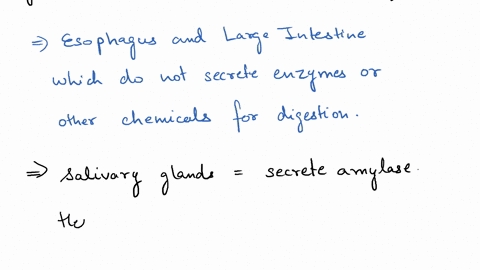 ⇒ Esophagus and Large Intestine
which do not secrete enzymes or
other chemicals for digestion.
⇒ salivary glands = secrete amylase.